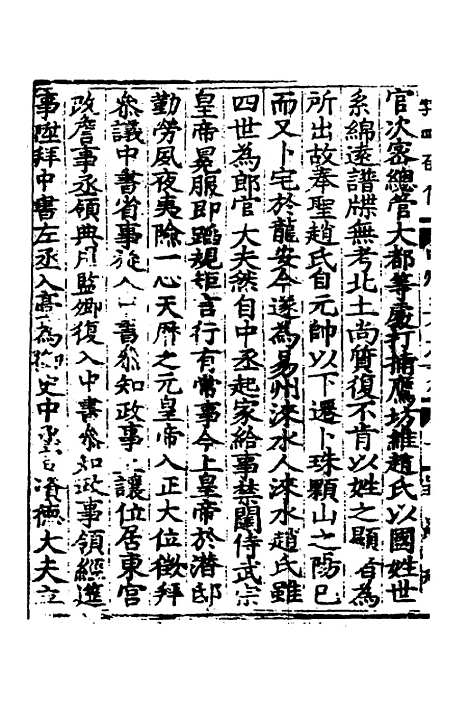 官次密總管大都等處打捕鷹坊維趙氏以國姓世
系綿遠譜牒無考北土尚質復不肯以姓之顯者為
所出故奉聖趙氏自元帥以下遷卜珠顆山之陽巳
而又卜宅於龍安今遂為易州淶水人淶水趙氏雖
四世為郎官大夫然自中丞起家給事禁闥侍武宗
皇帝冕服即蹈規矩言行有常事今上皇帝於潛邸
勤勞夙夜夷險一心天曆之元皇帝入正大位徵拜
參議中書省事旋入 書參知政事 讓位居東宮
政詹事丞領典用監卿復入中書參知政事領經筵
事陞拜中書左丞入臺為御史中丞 資德大夫立